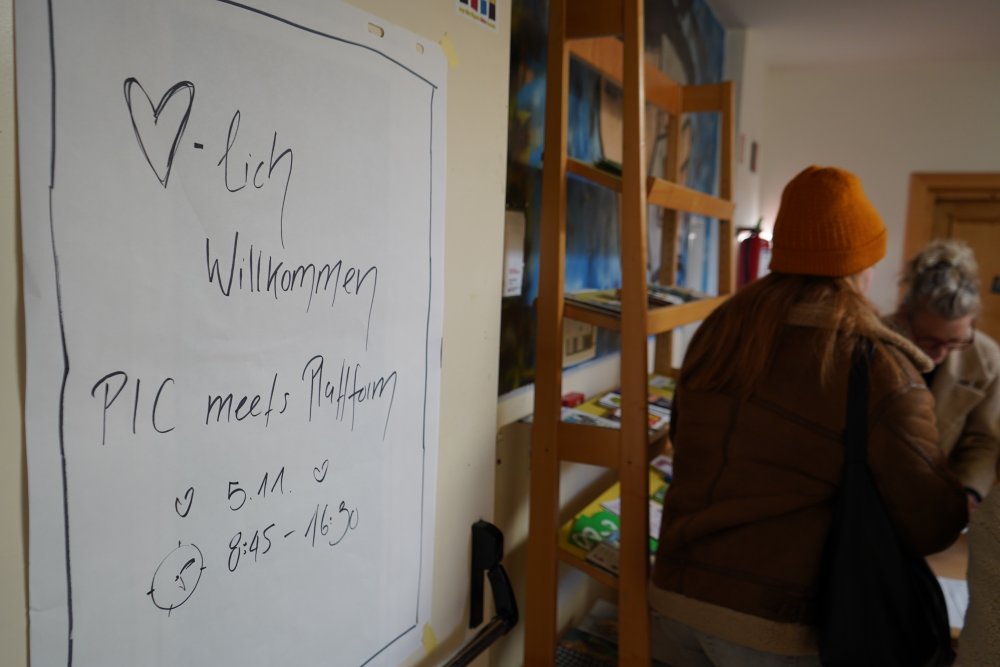 ♡-lich
Willkommen
PIC meets Plattform
♡ 5.11. ♡
8:45 - 16:30